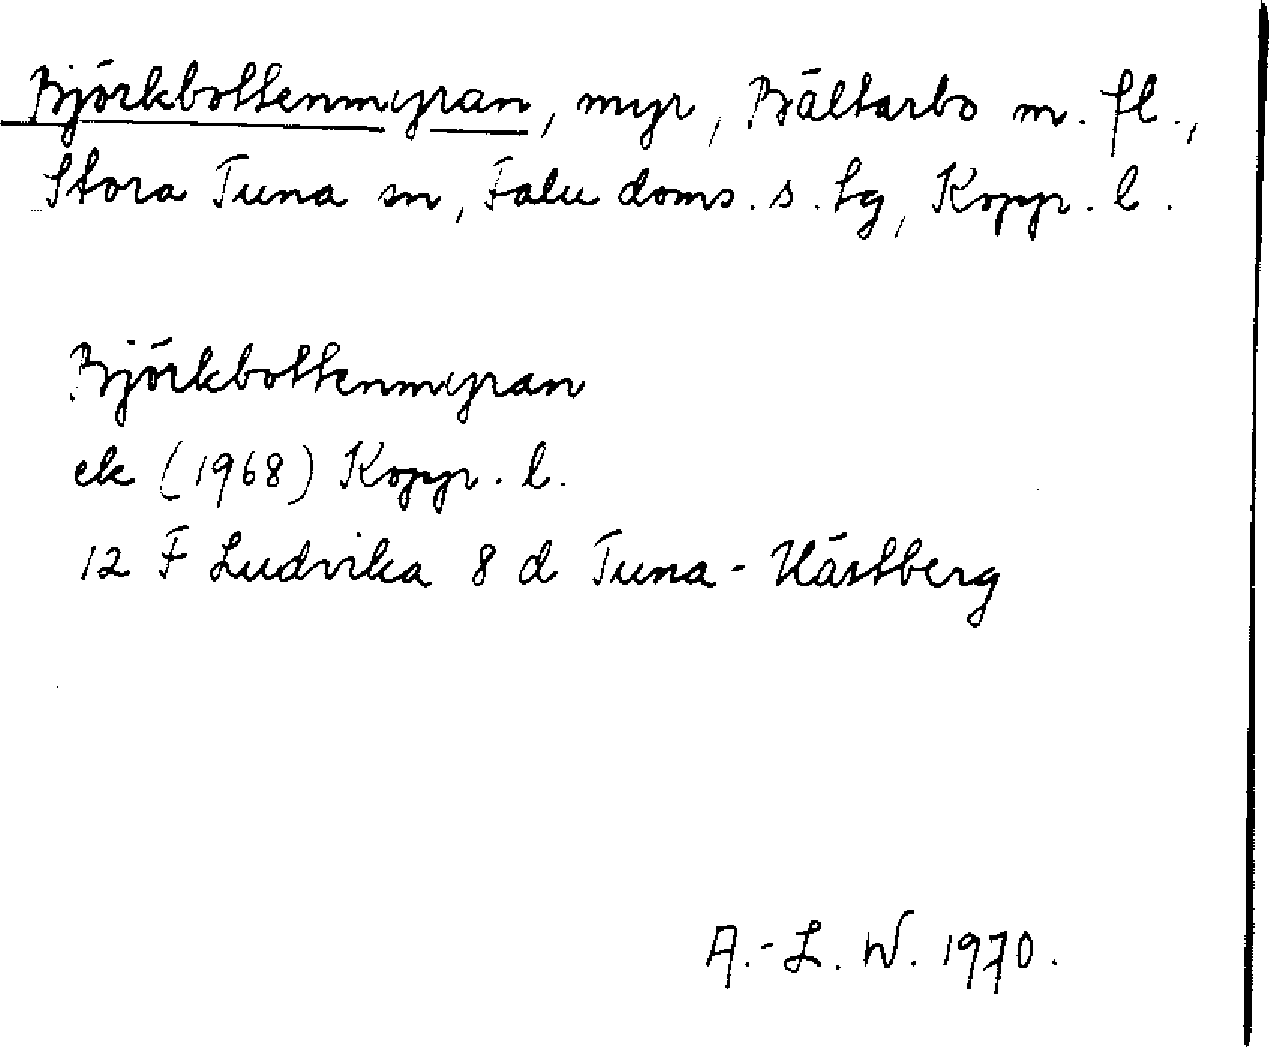 Björkbottenmyran, myr, Bältarbo m. fl.,
Stora Tuna sn, Falu doms. s. tg, Kopp. l.
Björkbottenmyran
ek (1968) Kopp. l.
12 F Ludvika 8 d Tuna-Hästberg
A.-L. W. 1970.